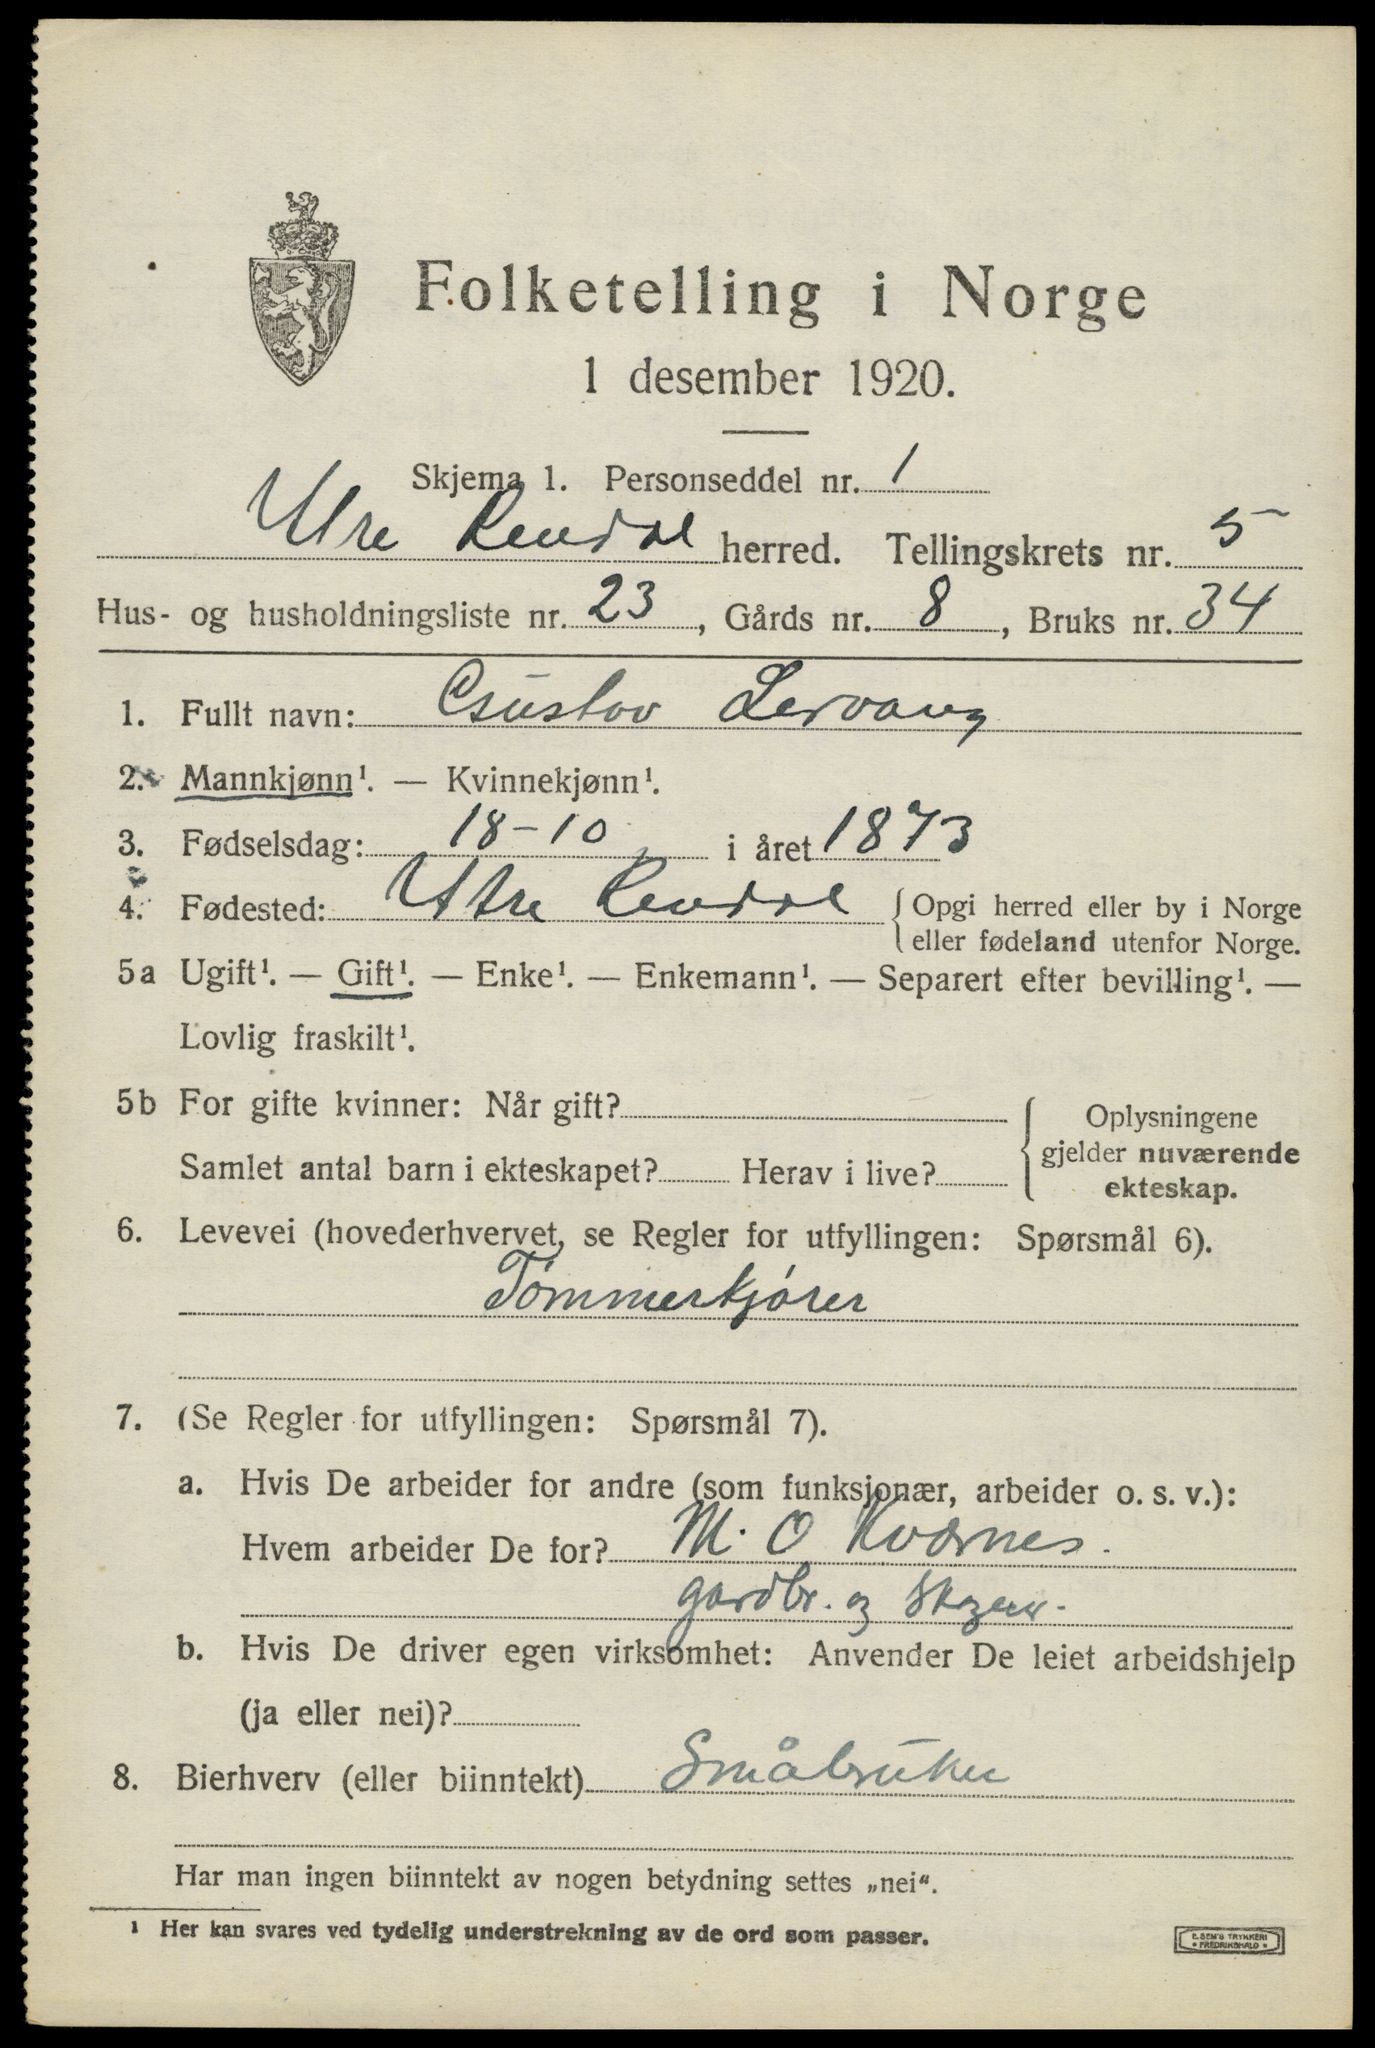 Folketelling i Norge
1 desember 1920.
Skjema 1. Personseddel nr. 1
Ytre Rendal herred. Tellingskrets nr. 5
Hus- og husholdningsliste nr. 23, Gårds nr. 8, Bruks nr. 34
1. Fullt navn: Gustav Lervang
2. Mannkjønn¹. — Kvinnekjønn¹.
3. Fødselsdag: 18-10 i året 1873
4. Fødested: Ytre Rendal { Opgi herred eller by i Norge
eller fødeland utenfor Norge.
5a Ugift¹. — Gift¹. — Enke¹. — Enkemann¹. — Separert efter bevilling¹. —
Lovlig fraskilt¹.
5b For gifte kvinner: Når gift?
Samlet antal barn i ekteskapet? Herav i live?
{ Oplysningene
gjelder nuværende
ekteskap.
6. Levevei (hovederhvervet, se Regler for utfyllingen: Spørsmål 6).
Tømmerkjører
7. (Se Regler for utfyllingen: Spørsmål 7).
a. Hvis De arbeider for andre (som funksjonær, arbeider o. s. v.):
Hvem arbeider De for? M. O Kværnes.
gardbr. og Skogeier.
b. Hvis De driver egen virksomhet: Anvender De leiet arbeidshjelp
(ja eller nei)?
8. Bierhverv (eller biinntekt) Småbruker
Har man ingen biinntekt av nogen betydning settes „nei“.
¹ Her kan svares ved tydelig understrekning av de ord som passer.
E. SEM'S TRYKKERI
• FREDRIKSHALD •